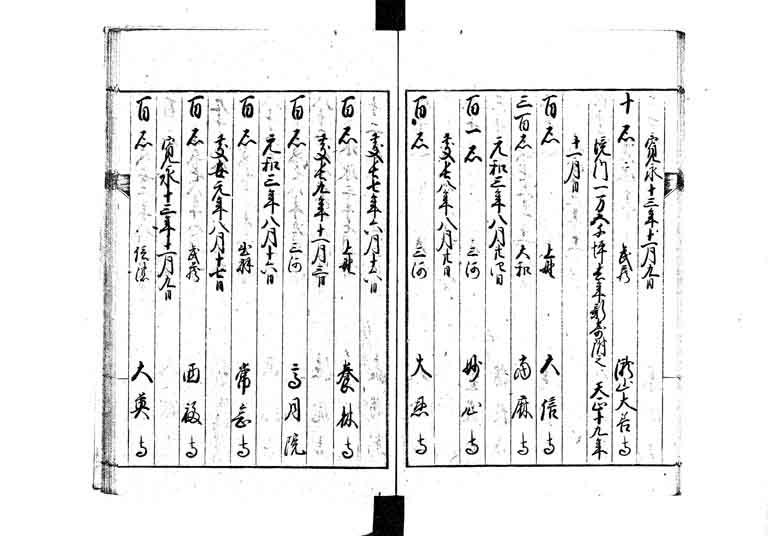 寛永十三年十一月九日
十石 武蔵 瀧山大善寺
境門一万 坪 年 寄附之 天正十九年
十一月日
百石 上野 大信寺
三百石 大和 當麻寺
元和三年八月廿四日
百一石 三河 妙心寺
慶長八年八月廿日
百石 三河 大恩寺
慶長七年六月十六日
百石 上野 養林寺
慶長九年十一月三日
百石 三河 高月院
元和三年八月十六日
百石 常念寺
慶安元年八月十七日
百石 武蔵 西福寺
寛永十三年十一月九日
百石 信濃 大英寺